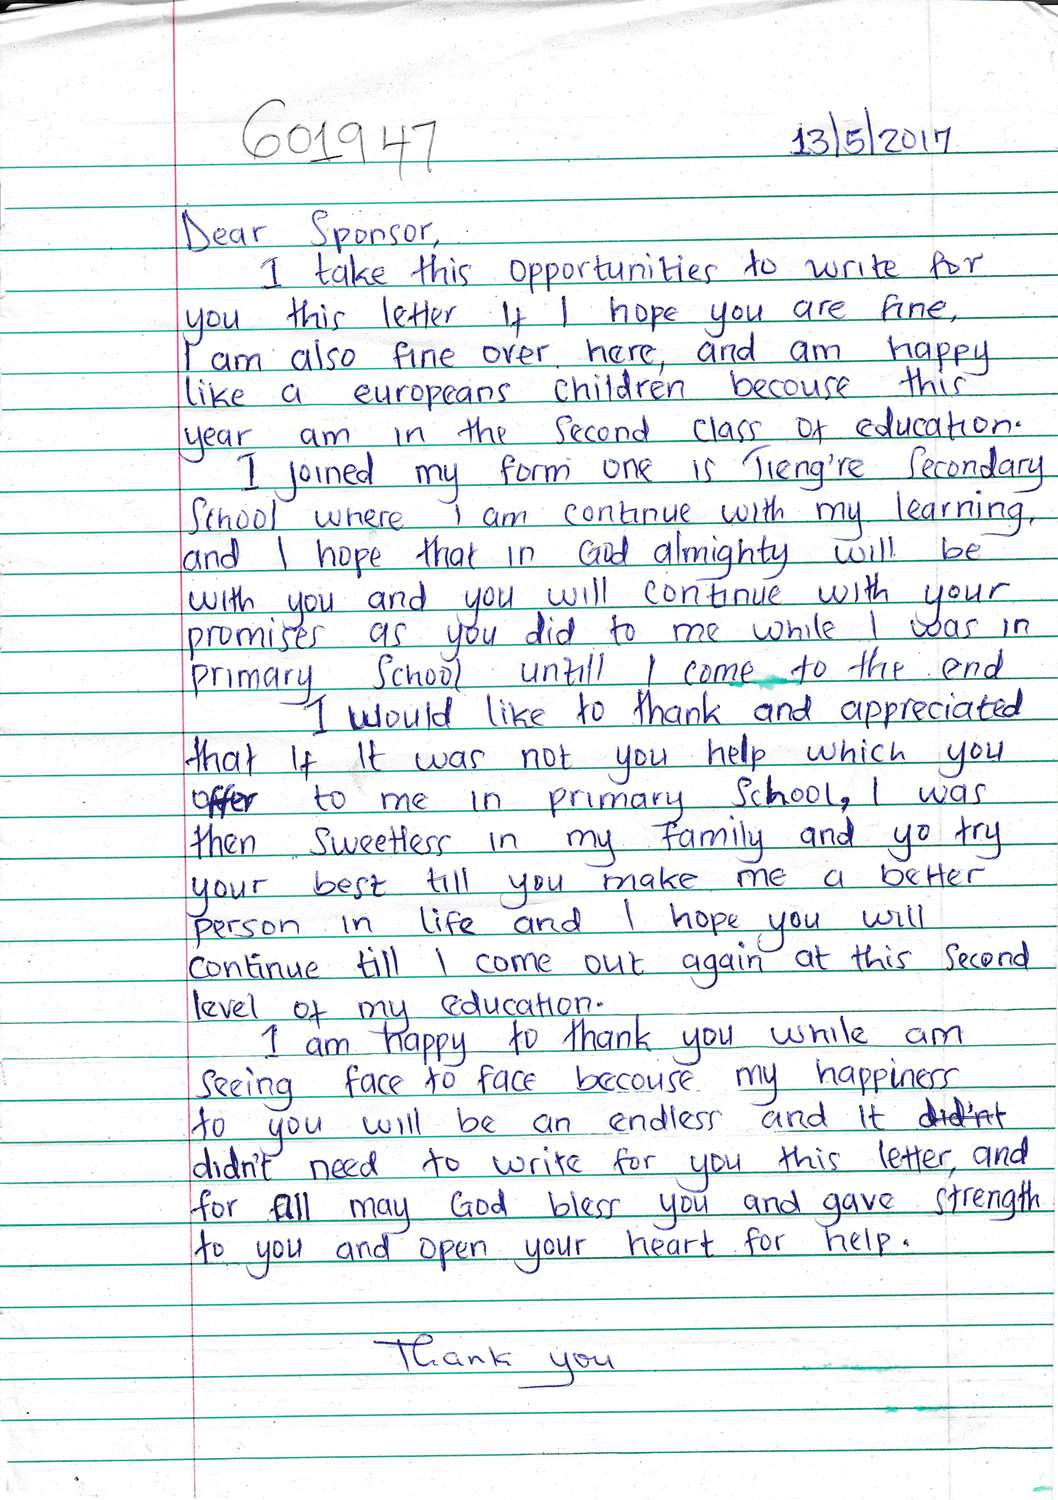 601947
13/5/2017
Dear Sponsor,
I take this opportunities to write for
you this letter If I hope you are fine,
I am also fine over here, and am happy
like a europeans children becouse this
year am in the second class of education.
I joined my form one is Tieng're Secondary
School where I am continue with my learning,
and I hope that in God almighty will be
with you and you will continue with your
promises as you did to me while I was in
primary School untill I come to the end
I would like to thank and appreciated
that If It was not you help which you
offer to me in primary School, I was
then sweetless in my family and yo try
your best till you make me a better
person in life and I hope you will
continue till I come out again at this second
level of my education.
I am happy to thank you while am
seeing face to face becouse my happiness
to you will be an endless and It did'nt
didn't need to write for you this letter, and
for all may God bless you and gave strength
to you and open your heart for help.
Thank you